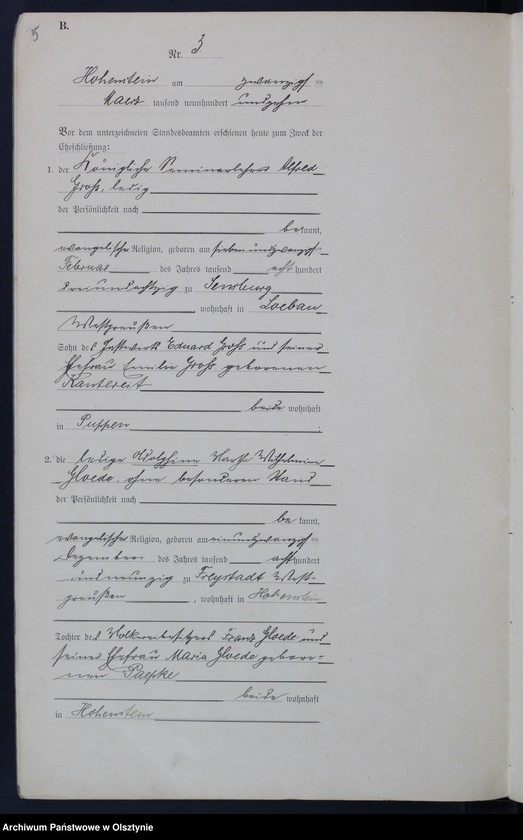 5
B.
Nr. 3
Hohenstein am zwanzigsten
Maerz tausend neunhundert undzehn
Vor dem unterzeichneten Standesbeamten erschienen heute zum Zweck der
Eheschließung:
1. der Königliche Seminarlehrer Alfred
Groß, ledig
der Persönlichkeit nach
bekannt,
evangelischer Religion, geboren am siebenundzwanzigsten
Februar des Jahres tausend acht hundert
dreiundachtzig zu Sensburg
, wohnhaft in Loebau
Westpreußen
Sohn des Gastwirts Eduard Groß und seiner
Ehefrau Emilie Groß geborenen
Kantereit
beide wohnhaft
in Puppen
2. die ledige Adolphine Wilhelmine
Gloede, ohne besonderen Stand
der Persönlichkeit nach
be kannt,
evangelischer Religion, geboren am einundzwanzigsten
Dezember des Jahres tausend acht hundert
undneunzig zu Freystadt West-
preußen , wohnhaft in Hohenstein
Tochter des Franz Gloede und
seiner Ehefrau Maria Gloede gebore-
nen Paepke
beide wohnhaft
in Hohenstein
Archiwum Państwowe w Olsztynie